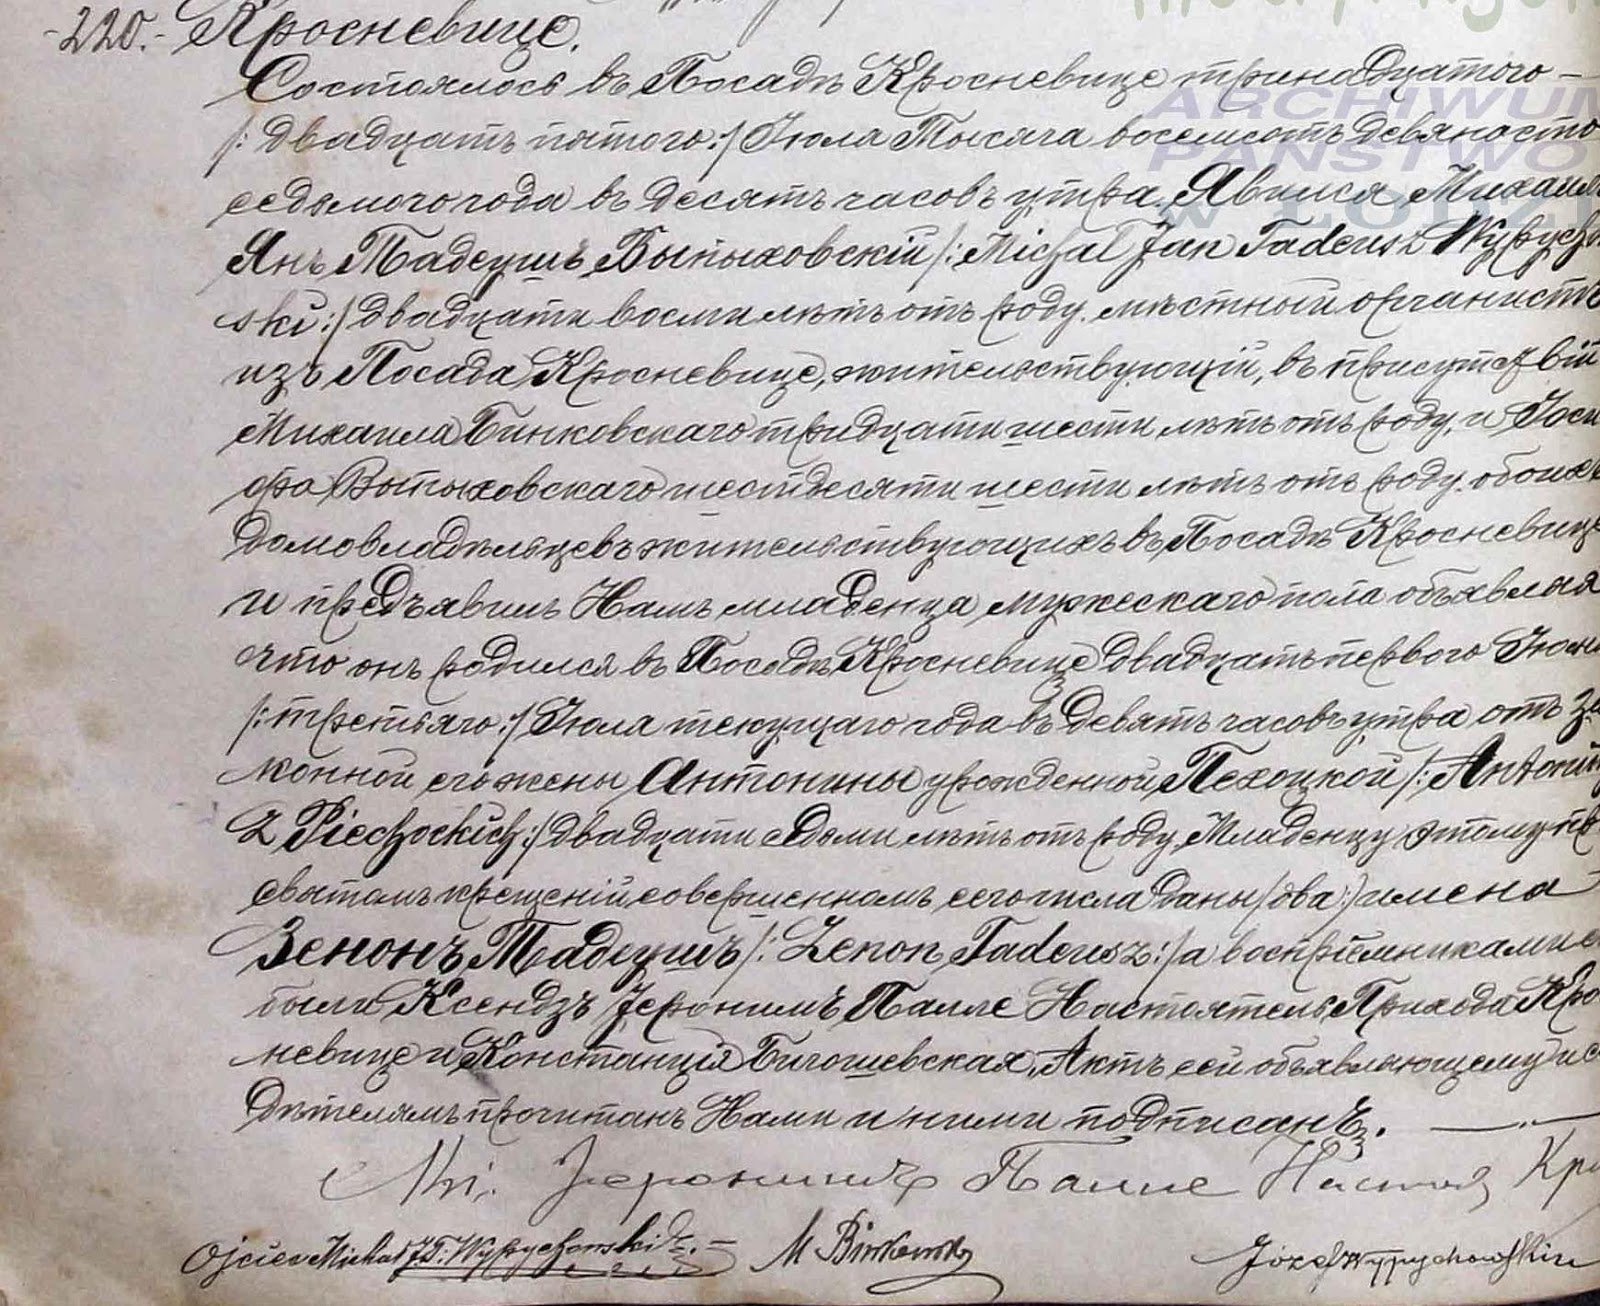 -220.- Кросневице.
Состоялось въ Посадѣ Кросневице тринадцатого —
/: двадцать пятого :/ Іюля Тысяча восемсотъ девяносто
седьмого года въ десять часовъ утра. Явился Михаилъ
Янъ Тадеушъ Выпыховскій /: Michał Jan Tadeusz Wypychow
ski :/ двадцати восми лѣтъ отъ роду. мѣстный органистъ
изъ Посада Кросневице, жительствующій, въ присутствій
Михаила Бинковскаго тридцати шести лѣтъ отъ роду, и Іоси
фа Выпыховскаго шестдесяти шести лѣтъ отъ роду. обоихъ
домовладѣльцевъ жительствующихъ въ Посадѣ Кросневице
и предъявилъ Намъ младенца мужескаго пола объявляя
что онъ родился въ Посадѣ Кросневице двадцать первого Іюня
/: третьяго :/ Іюля текущаго года въ девять часовъ утра отъ за
конной его жены Антонины урожденной Пехоцкой /: Antonin
z Piechockich :/ двадцати седьми лѣтъ отъ роду, Младенцу этому при
святомъ крещеній совершенномъ сего числа даны /два:/ имена
Зенонъ Тадеушъ /: Zenon Tadeusz :/ а воспріемниками
были Ксендзъ Іеронимъ Палле Настоятель Прихода Кро
невице и Констанція Бигошевская, Актъ сей объявляющему и сви
дѣтелямъ прочитанъ Нами и ними подписанъ. —
Іеронимъ Палле Настоя Кро
Ojciec Michał J. T. Wypychowski
M Binkowski
Józef Wypychowski
ARCHIWUM
PAŃSTWO
w ŁODZI